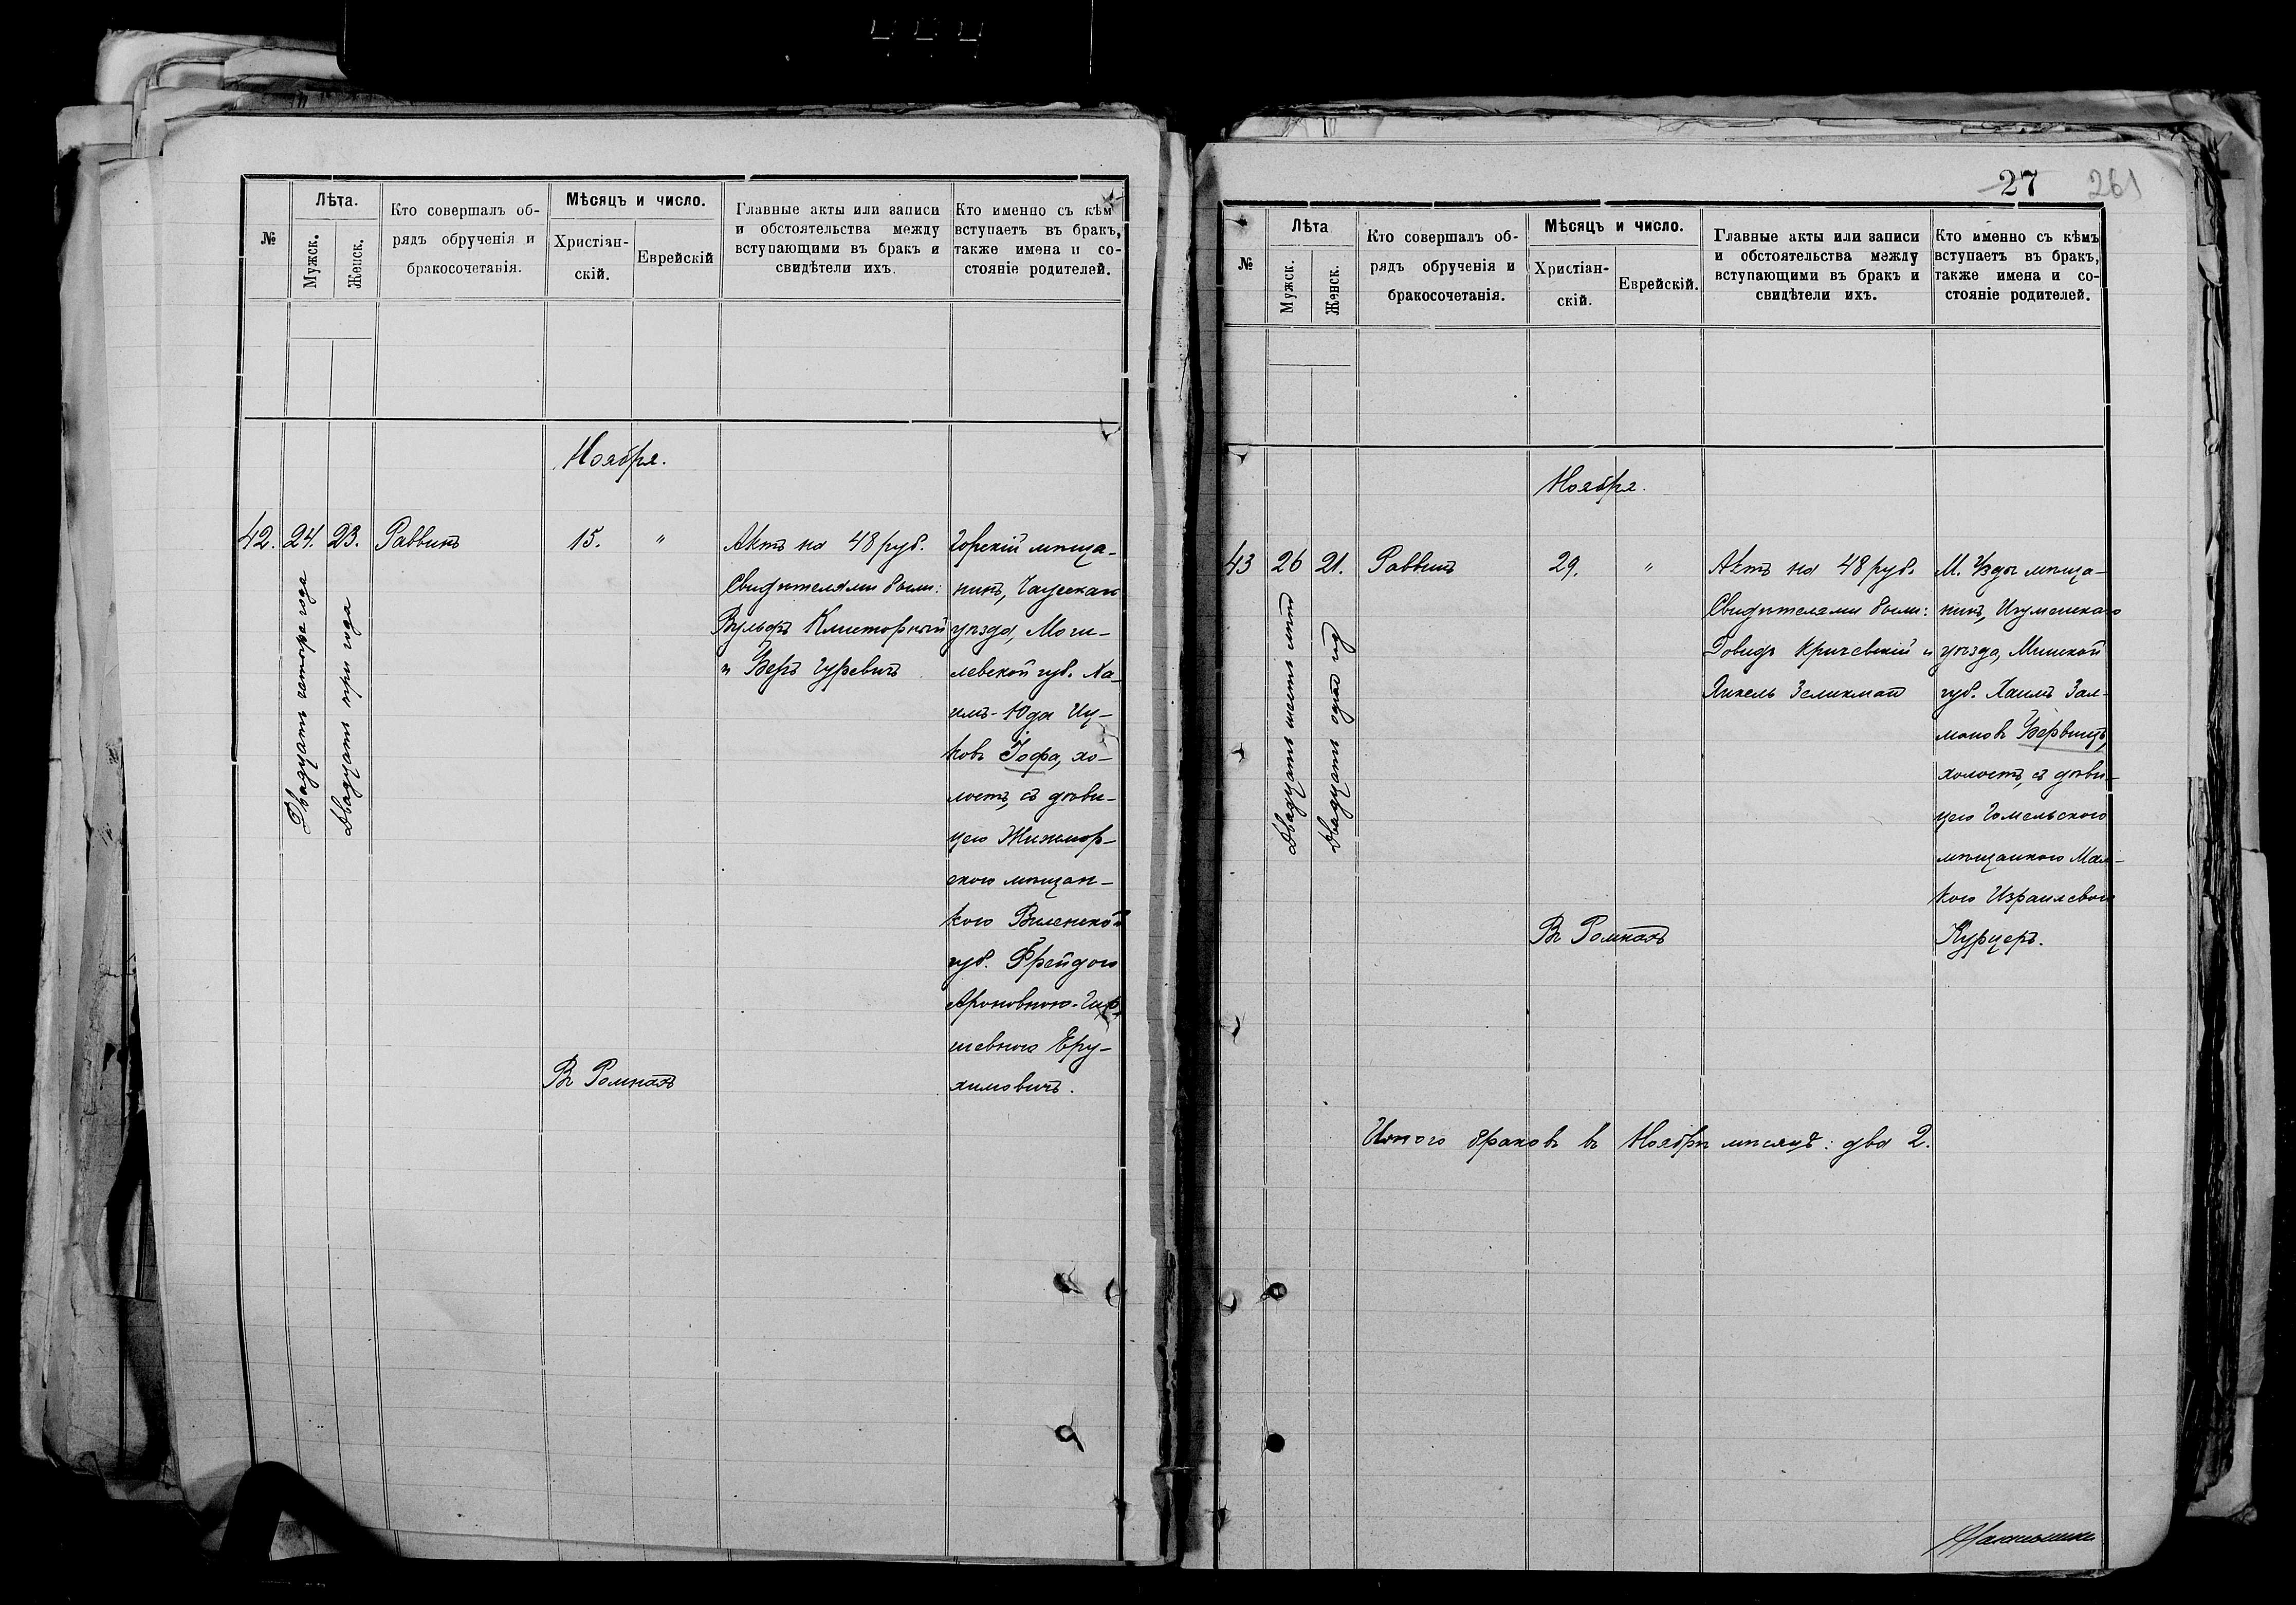 №
Лѣта.
Мужск.
Женск.
Кто совершалъ об-
рядъ обрученія и
бракосочетанія.
Мѣсяцъ и число.
Христіан-
скій.
Еврейскій
Главные акты или записи
и обстоятельства между
вступающими въ бракъ и
свидѣтели ихъ.
Кто именно съ кѣмъ
вступаетъ въ бракъ,
также имена и со-
стояніе родителей.
Ноября.
42.
24.
Двадцать четыре года
23.
Двадцать три года
Раввинъ
15.
"
Актъ на 48 руб.
Свидѣтелями были:
Вульфъ Клиторный
и Беръ Гуревичъ
Горскій мѣща-
нинъ, Чаусскаго
уѣзда, Моги-
левской губ. Ха-
имъ-Юда Иц-
ковъ Іофа, хо-
лостъ, съ дѣви-
цею Жижмор-
скою мѣщан-
кою Виленской
губ. Фрейдою
Ароновною-Гир-
шевною Еру-
химовичъ.
Въ Ромнахъ
27
261
№
Лѣта
Мужск.
Женск.
Кто совершалъ об-
рядъ обрученія и
бракосочетанія.
Мѣсяцъ и число.
Христіан-
скій.
Еврейскій.
Главные акты или записи
и обстоятельства между
вступающими въ бракъ и
свидѣтели ихъ.
Кто именно съ кѣмъ
вступаетъ въ бракъ,
также имена и со-
стояніе родителей.
Ноября.
43
26
Двадцать шесть лѣтъ
21.
Двадцать одинъ годъ
Раввинъ
29.
"
Актъ на 48 руб.
Свидѣтелями были:
Довидъ Кричевскій и
Янкель Зеликманъ
М. Узды мѣща-
нинъ, Игуменскаго
уѣзда, Минской
губ. Хаимъ Зал-
мановъ Бервицъ,
холостъ, съ дѣви-
цею Гомельскою
мѣщанкою Мал-
кою Израилевою
Курцеръ.
Въ Ромнахъ
Итого браковъ въ Ноябрѣ мѣсяцѣ: два 2.